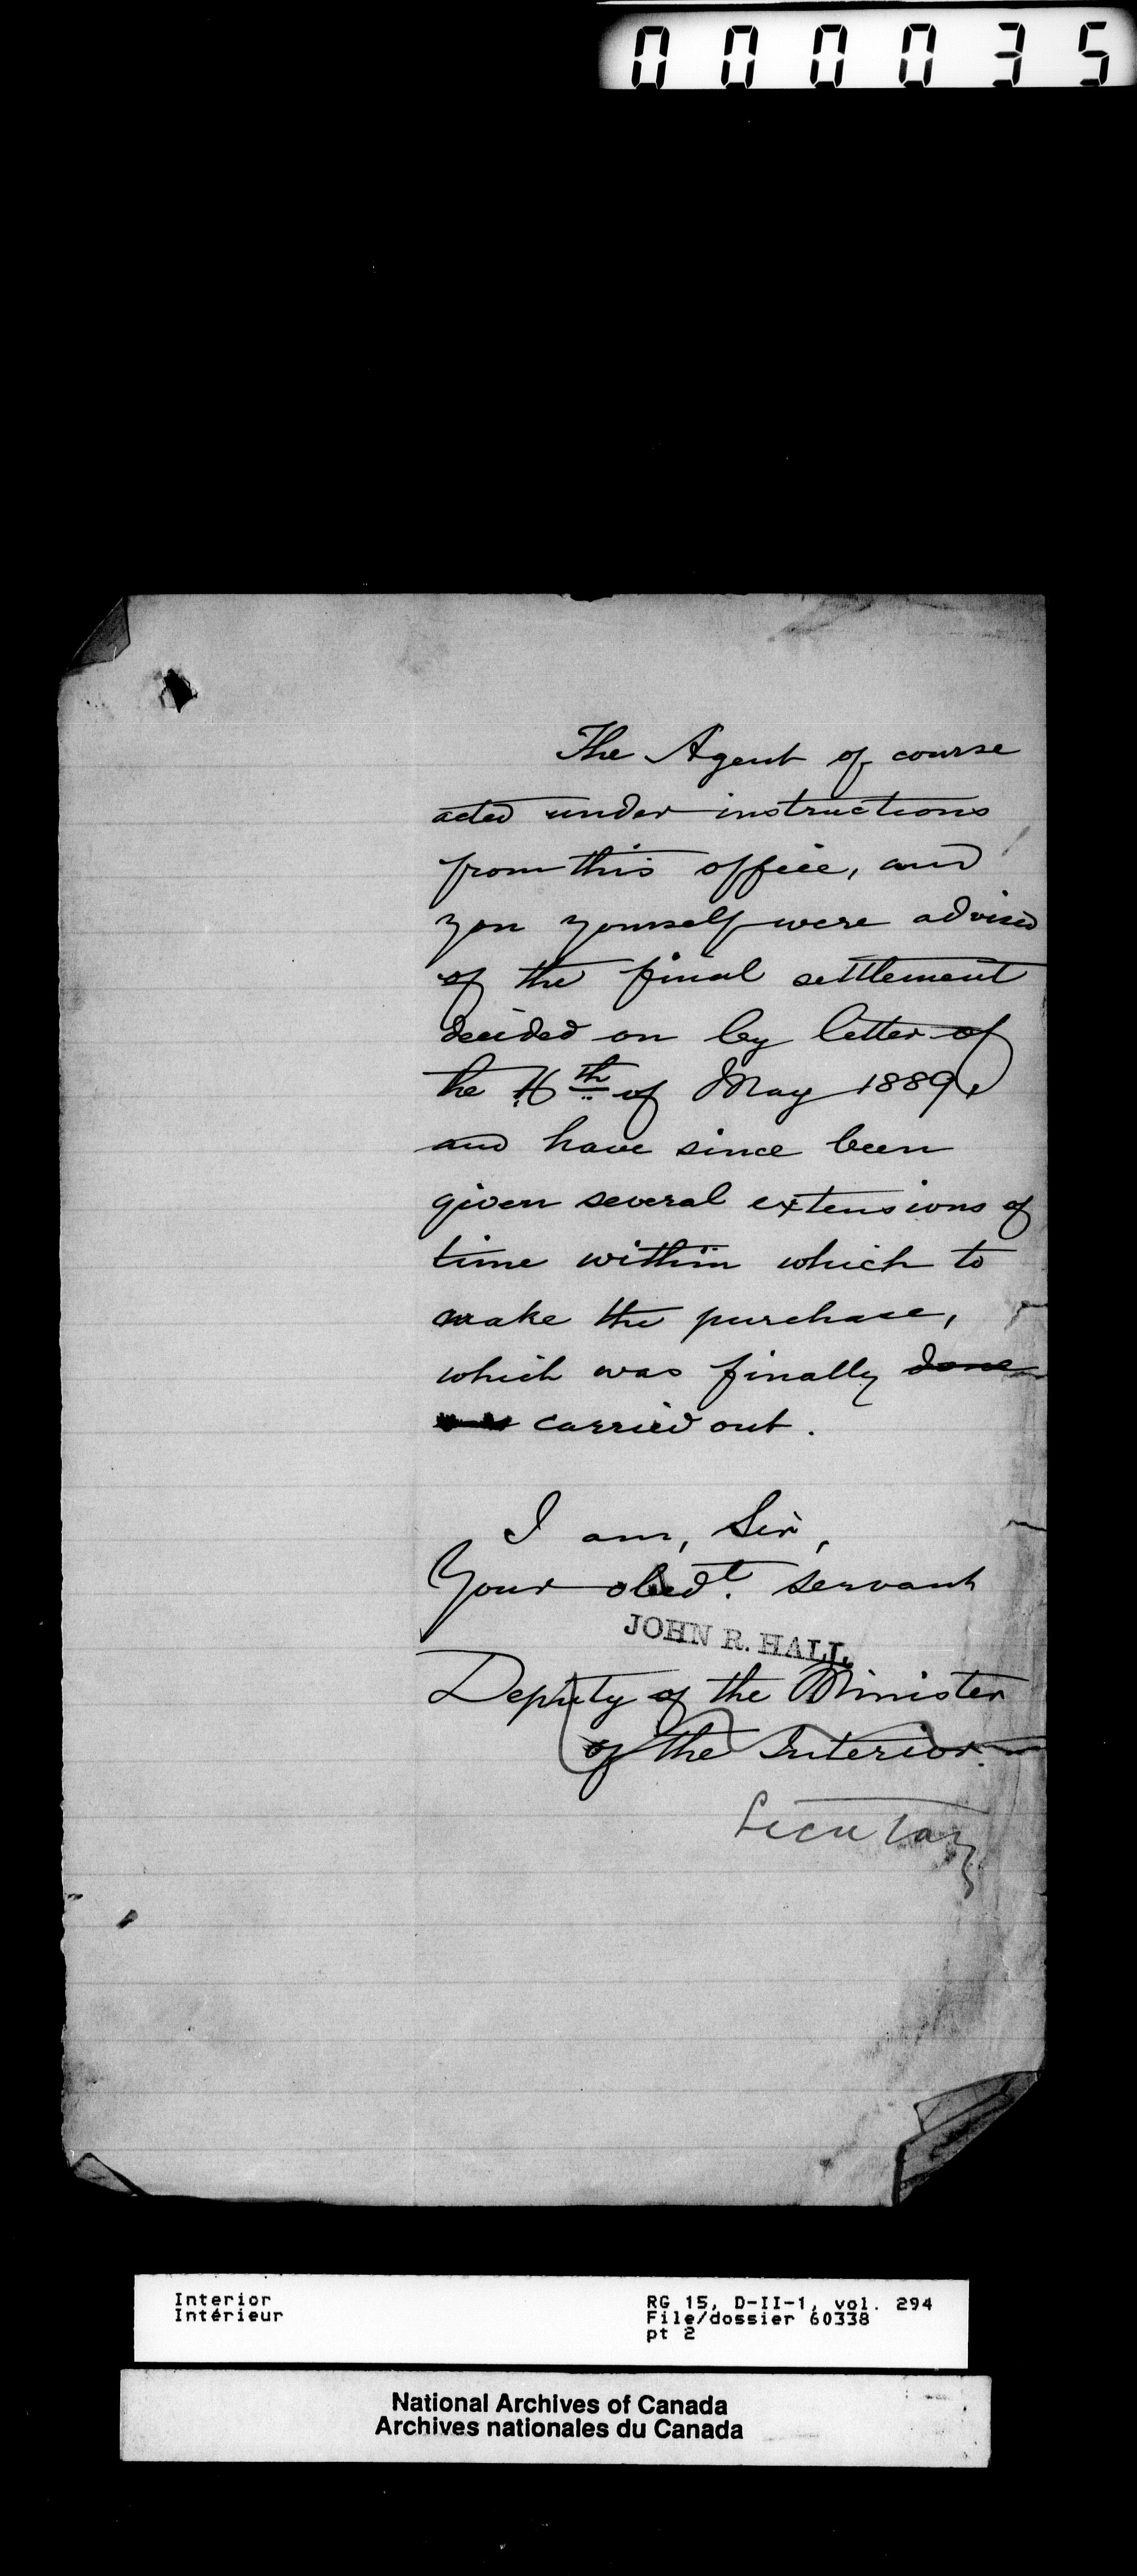 000035
The Agent of course
acted under instructions
from this office, and
you yourself were advised
of the final settlement
decided on by letter of
the th of May 1889,
and have since been
given several extensions of
time within which to
make the purchase,
which was finally done
carried out.
I am, Sir,
Your obedt. servant
JOHN R. HALL,
Deputy of the Minister
of the Interior.
Secretary
Interior
Intérieur
RG 15, D-II-1, vol. 294
File/dossier 60338
pt 2
National Archives of Canada
Archives nationales du Canada